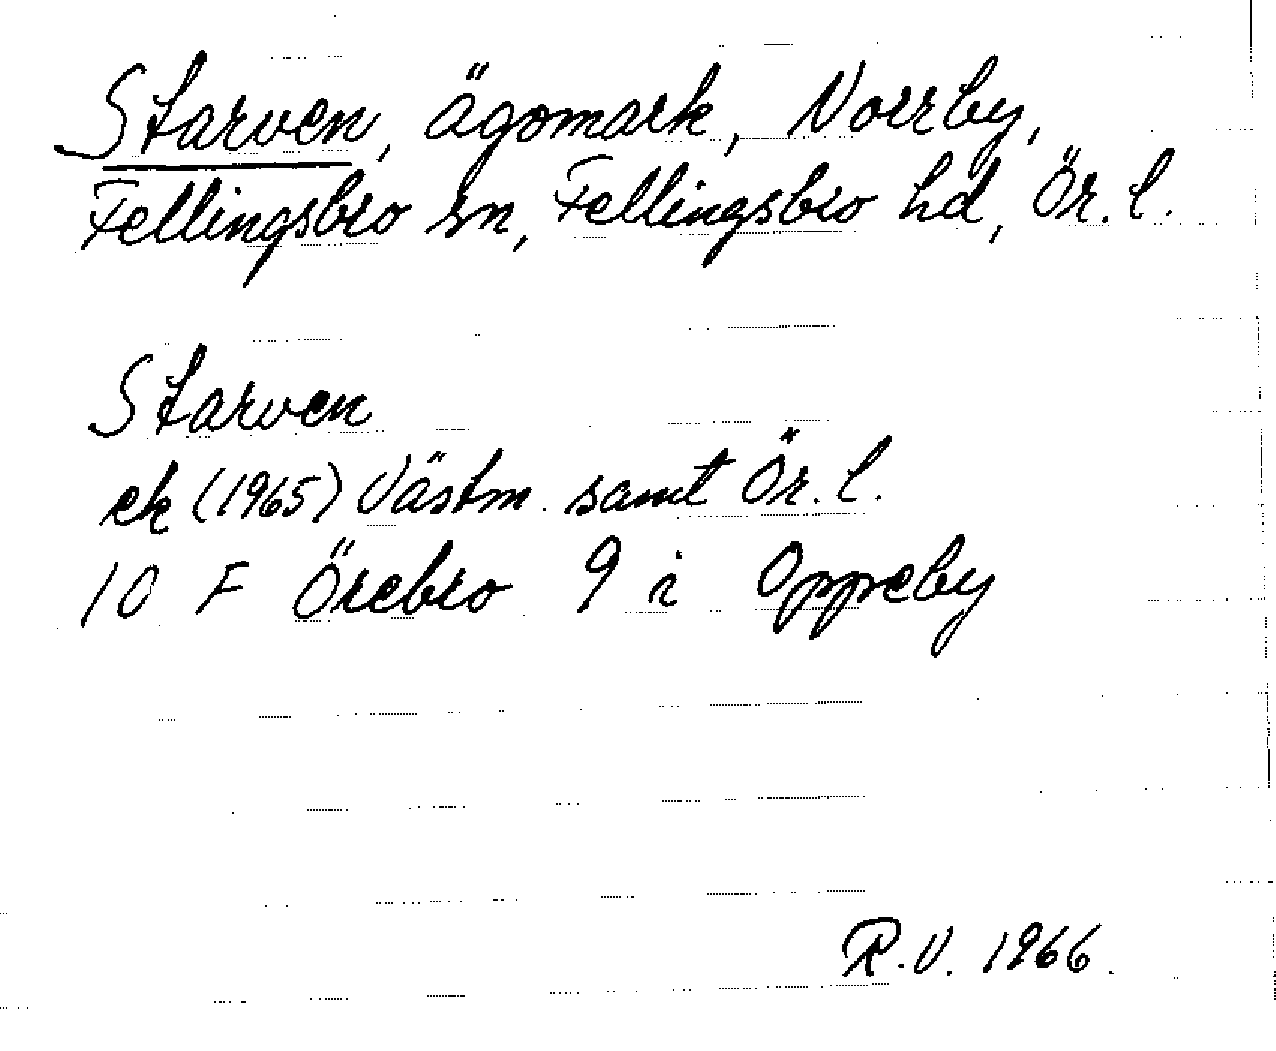 Starven, ägomark, Norrby,
Fellingsbro sn, Fellingsbro hd, Ör. l.
Starven
ek (1965) Västm. samt Ör. l.
10 F Örebro 9 i Oppeby
R.V. 1966.